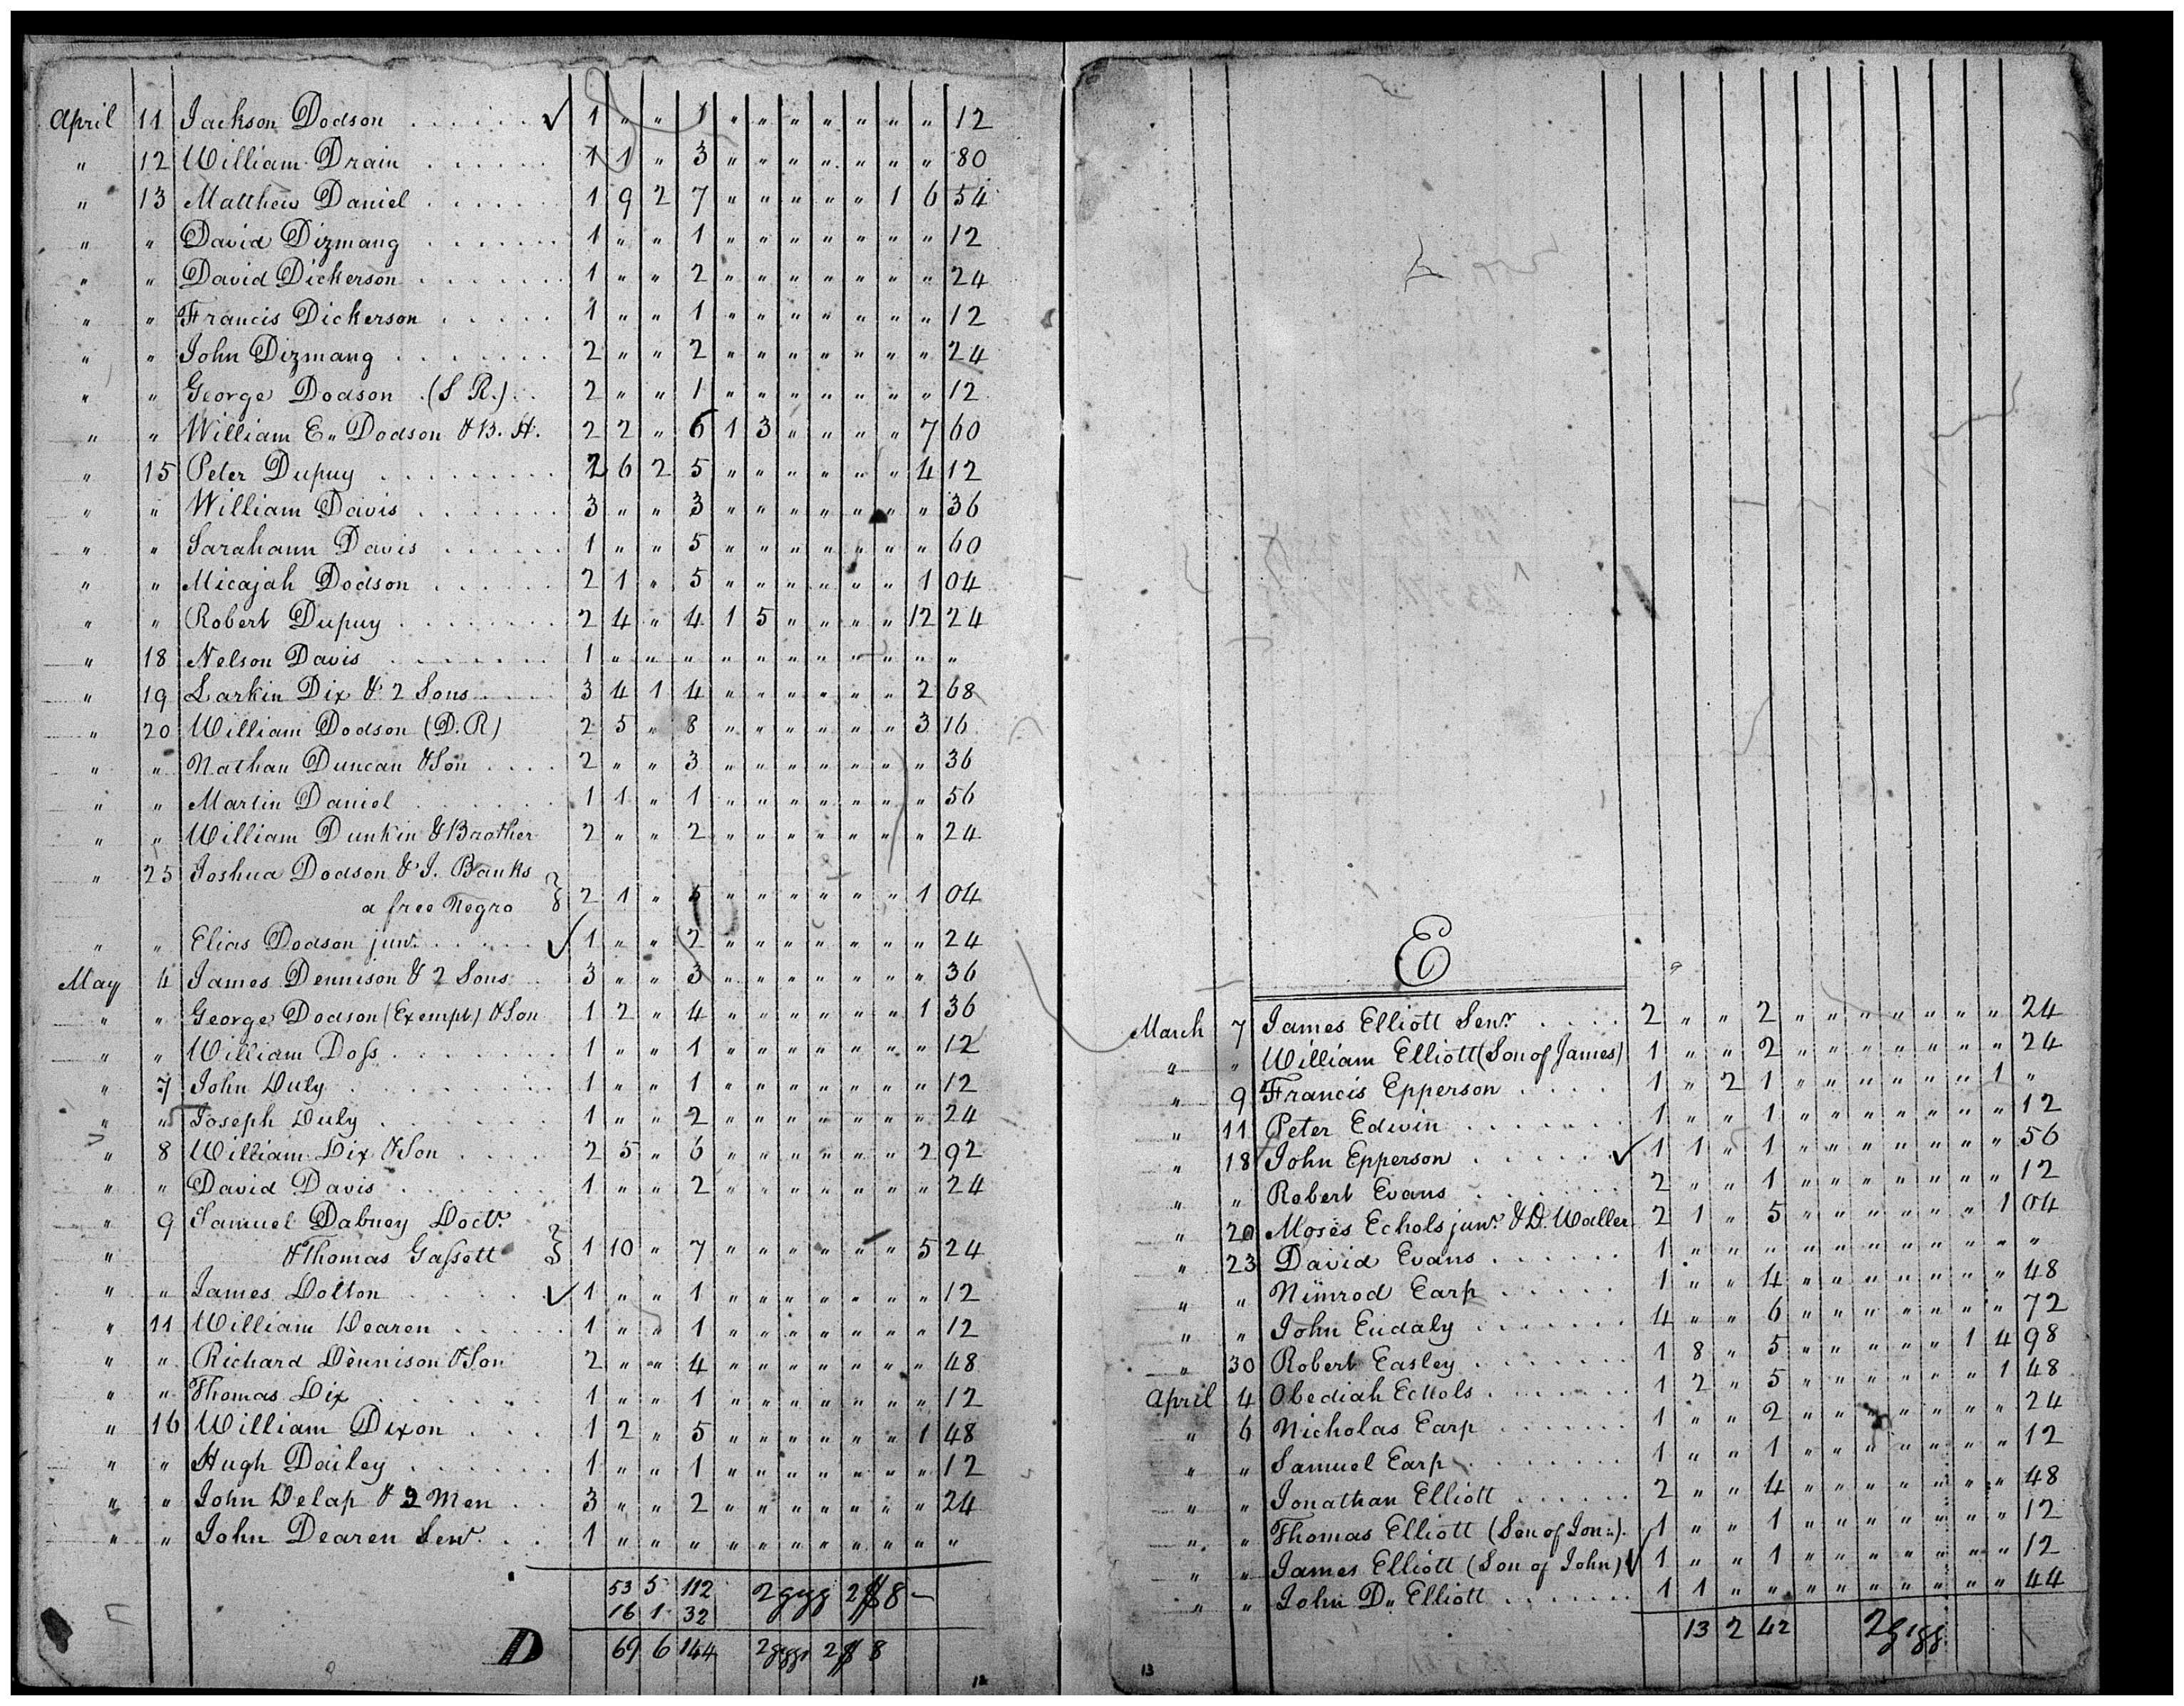 April 11 Jackson Dodson . . . . . . ✓ 1 " " 1 " " " " " " " 12
" 12 William Drain . . . . . . 1 1 " 3 " " " " " " " 80
" 13 Matthew Daniel . . . . . . 1 9 2 7 " " " " " 1 6 54
" " David Dizmang . . . . . . 1 " " 1 " " " " " " " 12
" " David Dickerson . . . . . . 1 " " 2 " " " " " " " 24
" " Francis Dickerson . . . . . 1 " " 1 " " " " " " " 12
" " John Dizmang . . . . . . 2 " " 2 " " " " " " " 24
" " George Dodson . (S R.) . . 2 " " 1 " " " " " " " 12
" " William E" Dodson & B. H. 2 2 " 6 1 3 " " " " 7 60
" 15 Peter Dupuy . . . . . . . . 2 6 2 5 " " " " " " 4 12
" " William Davis . . . . . . 3 " " 3 " " " " " " " 36
" " Sarahann Davis . . . . . . 1 " " 5 " " " " " " " 60
" " Micajah Dodson . . . . . . 2 1 " 5 " " " " " " 1 04
" " Robert Dupuy . . . . . . . 2 4 " 4 1 5 " " " " 12 24
" 18 Nelson Davis . . . . . . . 1 " " " " " " " " " " "
" 19 Larkin Dix & 2 Sons . . . . 3 4 1 4 " " " " " " 2 68
" 20 William Dodson (D. R) 2 5 " 8 " " " " " " 3 16
" " Nathan Duncan & Son . . . . 2 " " 3 " " " " " " " 36
" " Martin Daniel . . . . . . 1 1 " 1 " " " " " " " 56
" " William Dunkin & Brother 2 " " 2 " " " " " " " 24
" 25 Joshua Dodson & J. Banks
a free Negro } 2 1 " 5 " " " " " " 1 04
" " Elias Dodson junr. . . . . . ✓ 1 " " 2 " " " " " " " 24
May 4 James Dennison & 2 Sons 3 " " 3 " " " " " " " 36
" " George Dodson (Exempt) & Son 1 2 " 4 " " " " " " 1 36
" " William Doss . . . . . . . 1 " " 1 " " " " " " " 12
" 7 John Duly . . . . . . . 1 " " 1 " " " " " " " 12
" " Joseph Duly . . . . . . 1 " " 2 " " " " " " " 24
" 8 William Dix & Son . . . . 2 5 " 6 " " " " " " 2 92
" " David Davis . . . . . . 1 " " 2 " " " " " " " 24
" 9 Samuel Dabney Doctr.
" & Thomas Gassett } 1 10 " 7 " " " " " " 5 24
" " James Dolton . . . . . . ✓ 1 " " 1 " " " " " " " 12
" 11 William Dearen . . . . . 1 " " 1 " " " " " " " 12
" " Richard Dennison & Son 2 " " 4 " " " " " " " 48
" " Thomas Dix . . . . . . . 1 " " 1 " " " " " " " 12
" 16 William Dixon . . . 1 2 " 5 " " " " " " 1 48
" " Hugh Dailey . . . . . . 1 " " 1 " " " " " " " 12
" " John Delap & 2 Men . . 3 " " 2 " " " " " " " 24
" " John Dearen Senr. . . 1 " " " " " " " " " " "
53 5 112 2 gigs 2 $ 8 –
16 1 32
D 69 6 144 2 gigs 2 $ 8
12
E
March 7 James Elliott Senr. . . . . 2 " " 2 " " " " " " " 24
" " William Elliott (Son of James) 1 " " 2 " " " " " " " 24
" 9 Francis Epperson . . . . 1 " 2 1 " " " " " " 1 "
" 11 Peter Edwin . . . . . . . 1 " " 1 " " " " " " " 12
" 18 John Epperson . . . . . . ✓ 1 1 " 1 " " " " " " " 56
" " Robert Evans . . . . . . . 2 " " 1 " " " " " " " 12
" 20 Moses Echols junr. & D. Waller 2 1 " 5 " " " " " " 1 04
" 23 David Evans . . . . . . 1 " " " " " " " " " " "
" " Nimrod Earp . . . . . 1 " " 4 " " " " " " " 48
" " John Eudaly . . . . . . . 4 " " 6 " " " " " " " 72
" 30 Robert Easley . . . . . . . 1 8 " 5 " " " " " 1 4 98
April 4 Obediah Echols . . . . . . . 1 2 " 5 " " " " " " 1 48
" 6 Nicholas Earp . . . . . . 1 " " 2 " " " " " " " 24
" " Samuel Earp . . . . . . . 1 " " 1 " " " " " " " 12
" " Jonathan Elliott . . . . . . 2 " " 4 " " " " " " " 48
" " Thomas Elliott (Son of Jon:). 1 " " 1 " " " " " " " 12
" " James Elliott (Son of John) ✓ 1 " " 1 " " " " " " " 12
" " John D" Elliott . . . . . . . 1 1 " " " " " " " " " 44
13 2 42 2 gigs
13